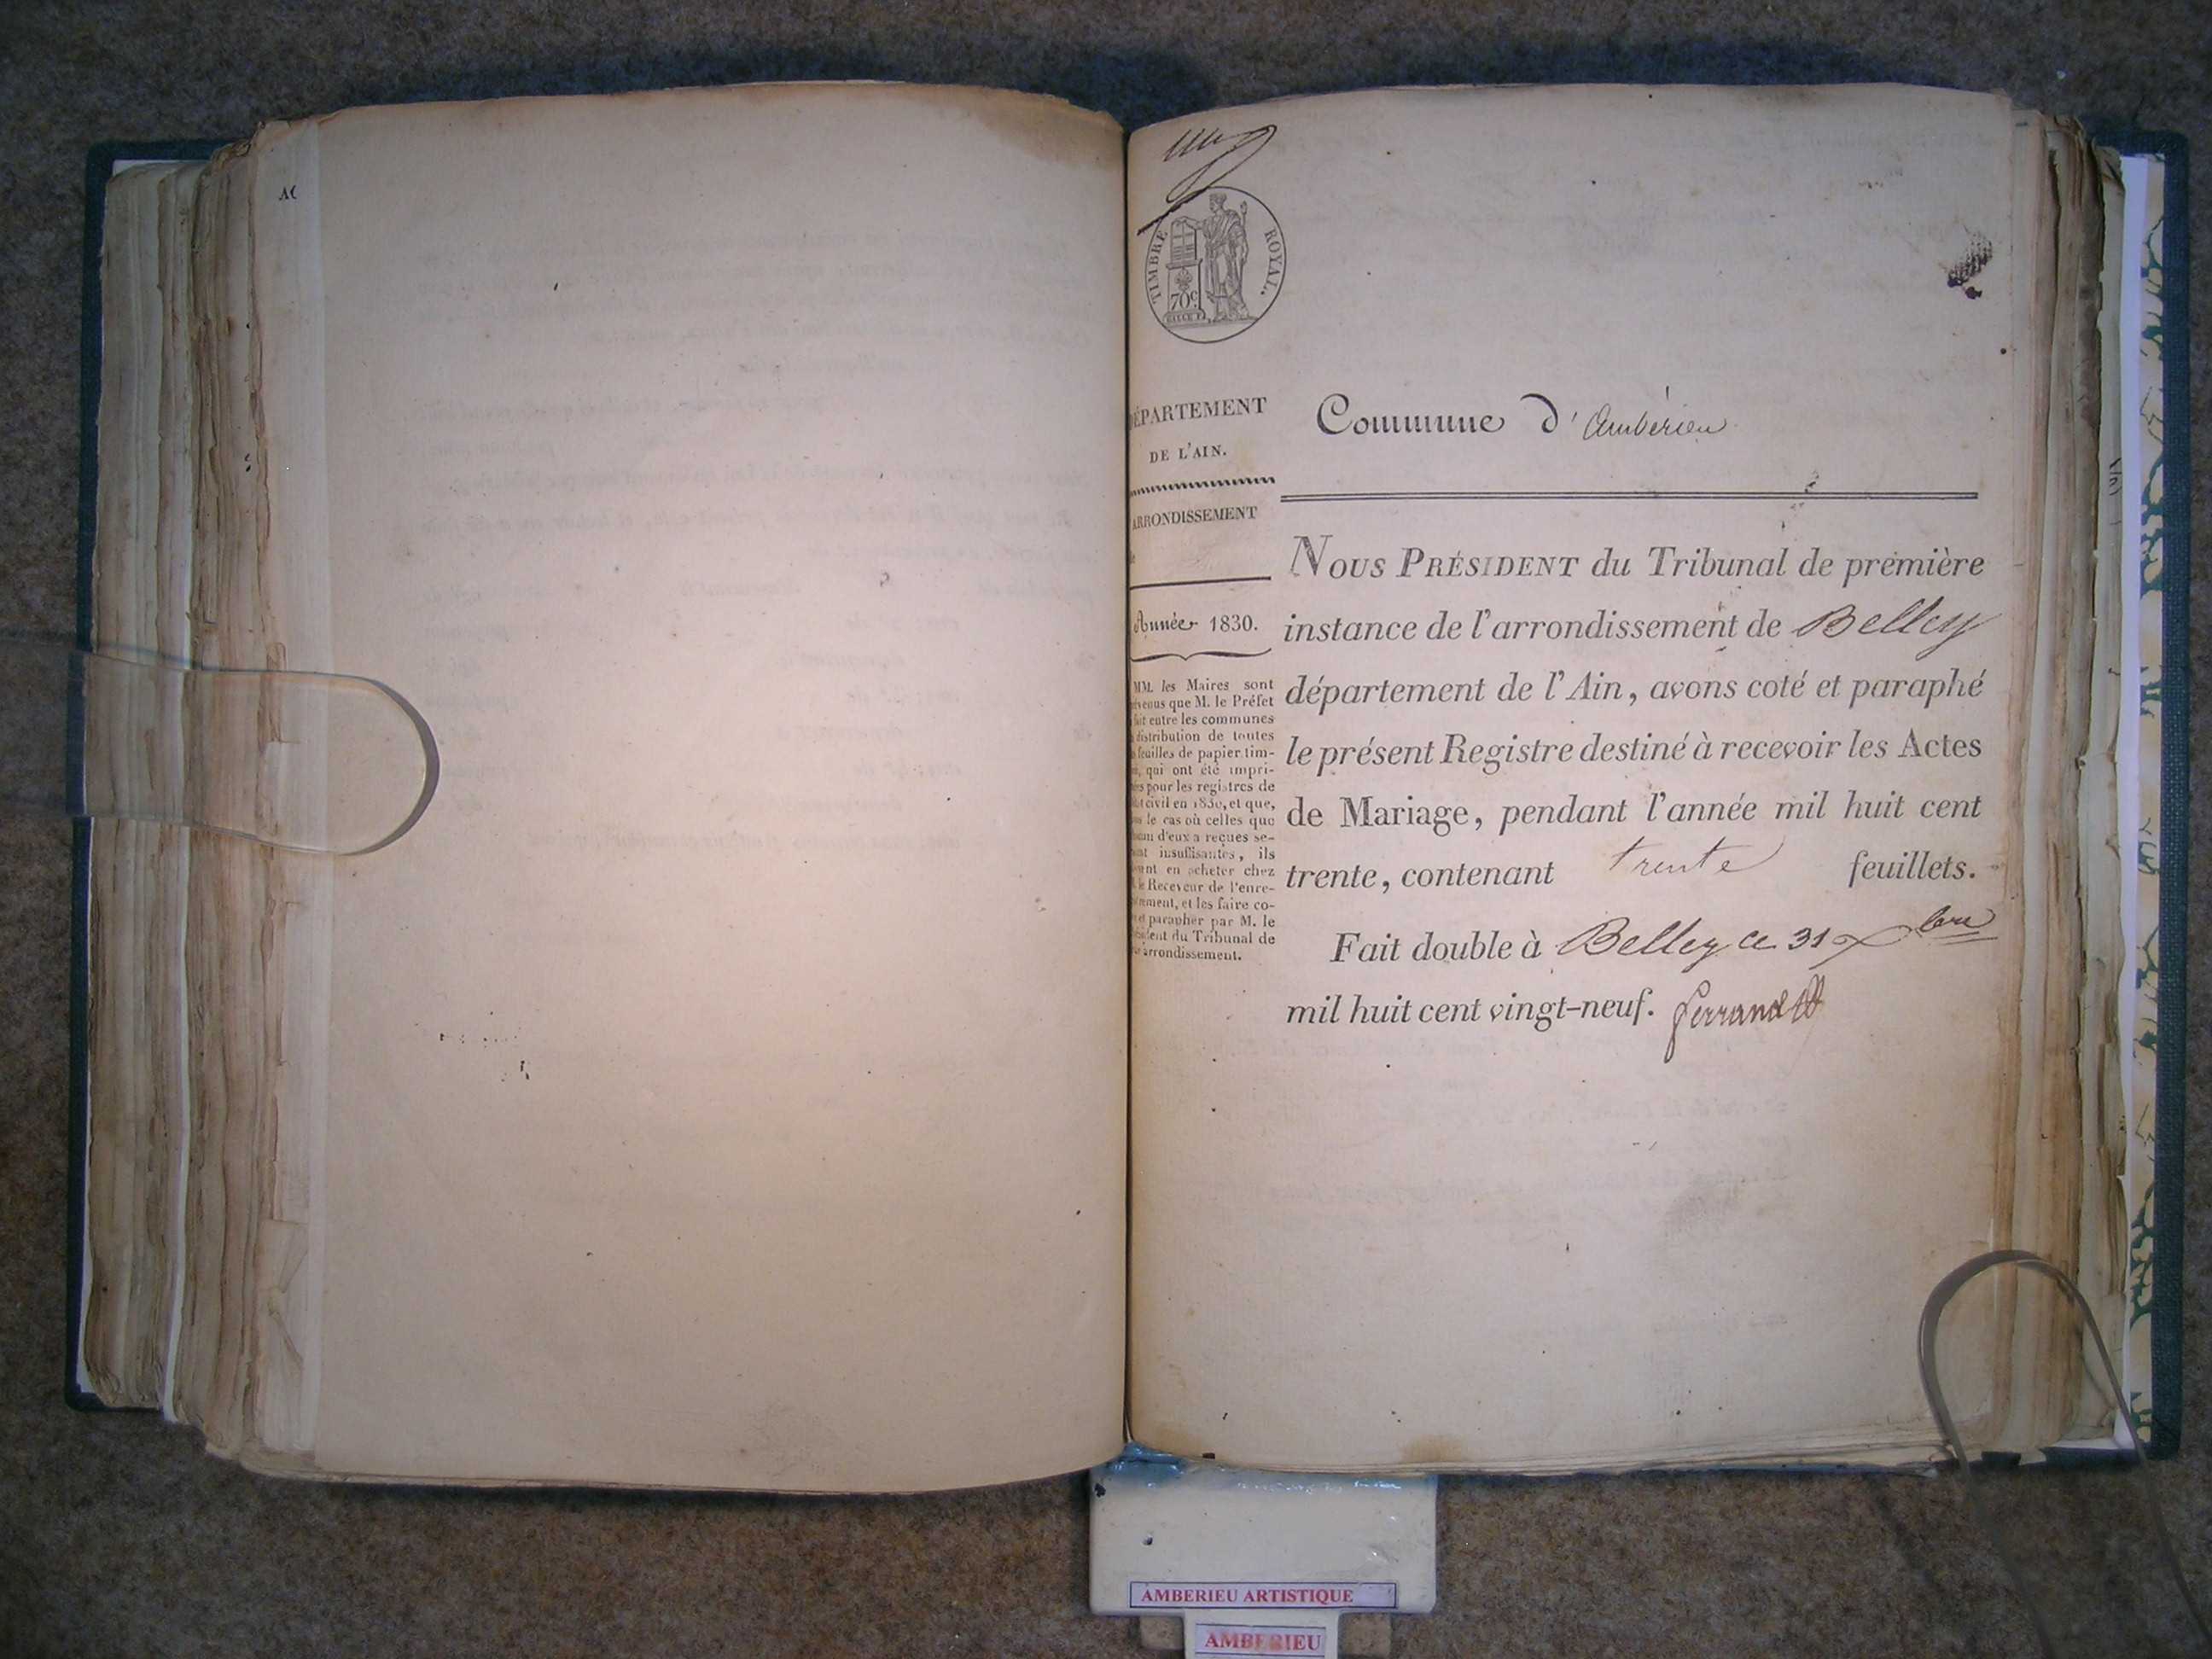 TIMBRE ROYAL.
70c.
DÉPARTEMENT
DE L'AIN.
ARRONDISSEMENT
Année 1830.
MM. les Maires sont
que M. le Préfet
entre les communes
distribution de toutes
feuilles de papier tim-
qui ont été impri-
pour les registres de
civil en 1830, et que,
le cas où celles que
d'eux a reçues se-
insuffisantes, ils
en acheter chez
le Receveur de l'enre-
et les faire co-
et parapher par M. le
du Tribunal de
arrondissement.
Commune d'Ambérieu
NOUS PRÉSIDENT du Tribunal de première
instance de l'arrondissement de Belley
département de l'Ain, avons coté et paraphé
le présent Registre destiné à recevoir les Actes
de Mariage, pendant l'année mil huit cent
trente, contenant trente feuillets.
Fait double à Belley ce 31 xbre
mil huit cent vingt-neuf. Ferrand
AMBERIEU ARTISTIQUE
AMBERIEU